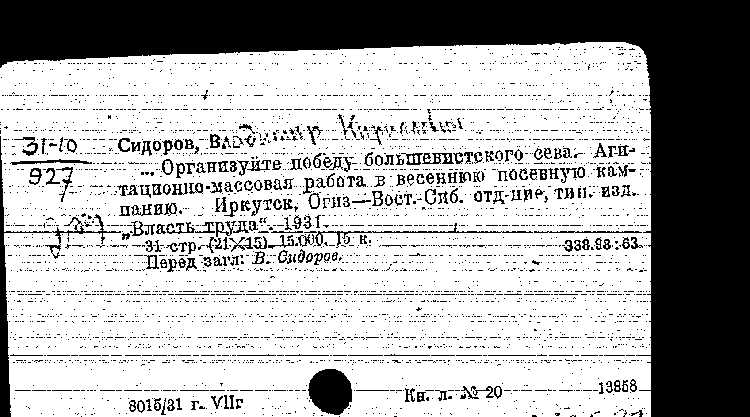 31-10
927
Сидоров, Владимир Кириллович
... Организуйте победу большевистского сева. Аги-
тационно-массовая работа в весеннюю посевную кам-
панию. Иркутск, Огиз—Вост.-Сиб. отд-ние, тип. изд.
„Власть труда“. 1931.
31 стр. (21×15). 15.000. 15 к.
338.98:63
Перед загл: В. Сидоров.
8015/31 г. VIIг
Кн. л. № 20
13858